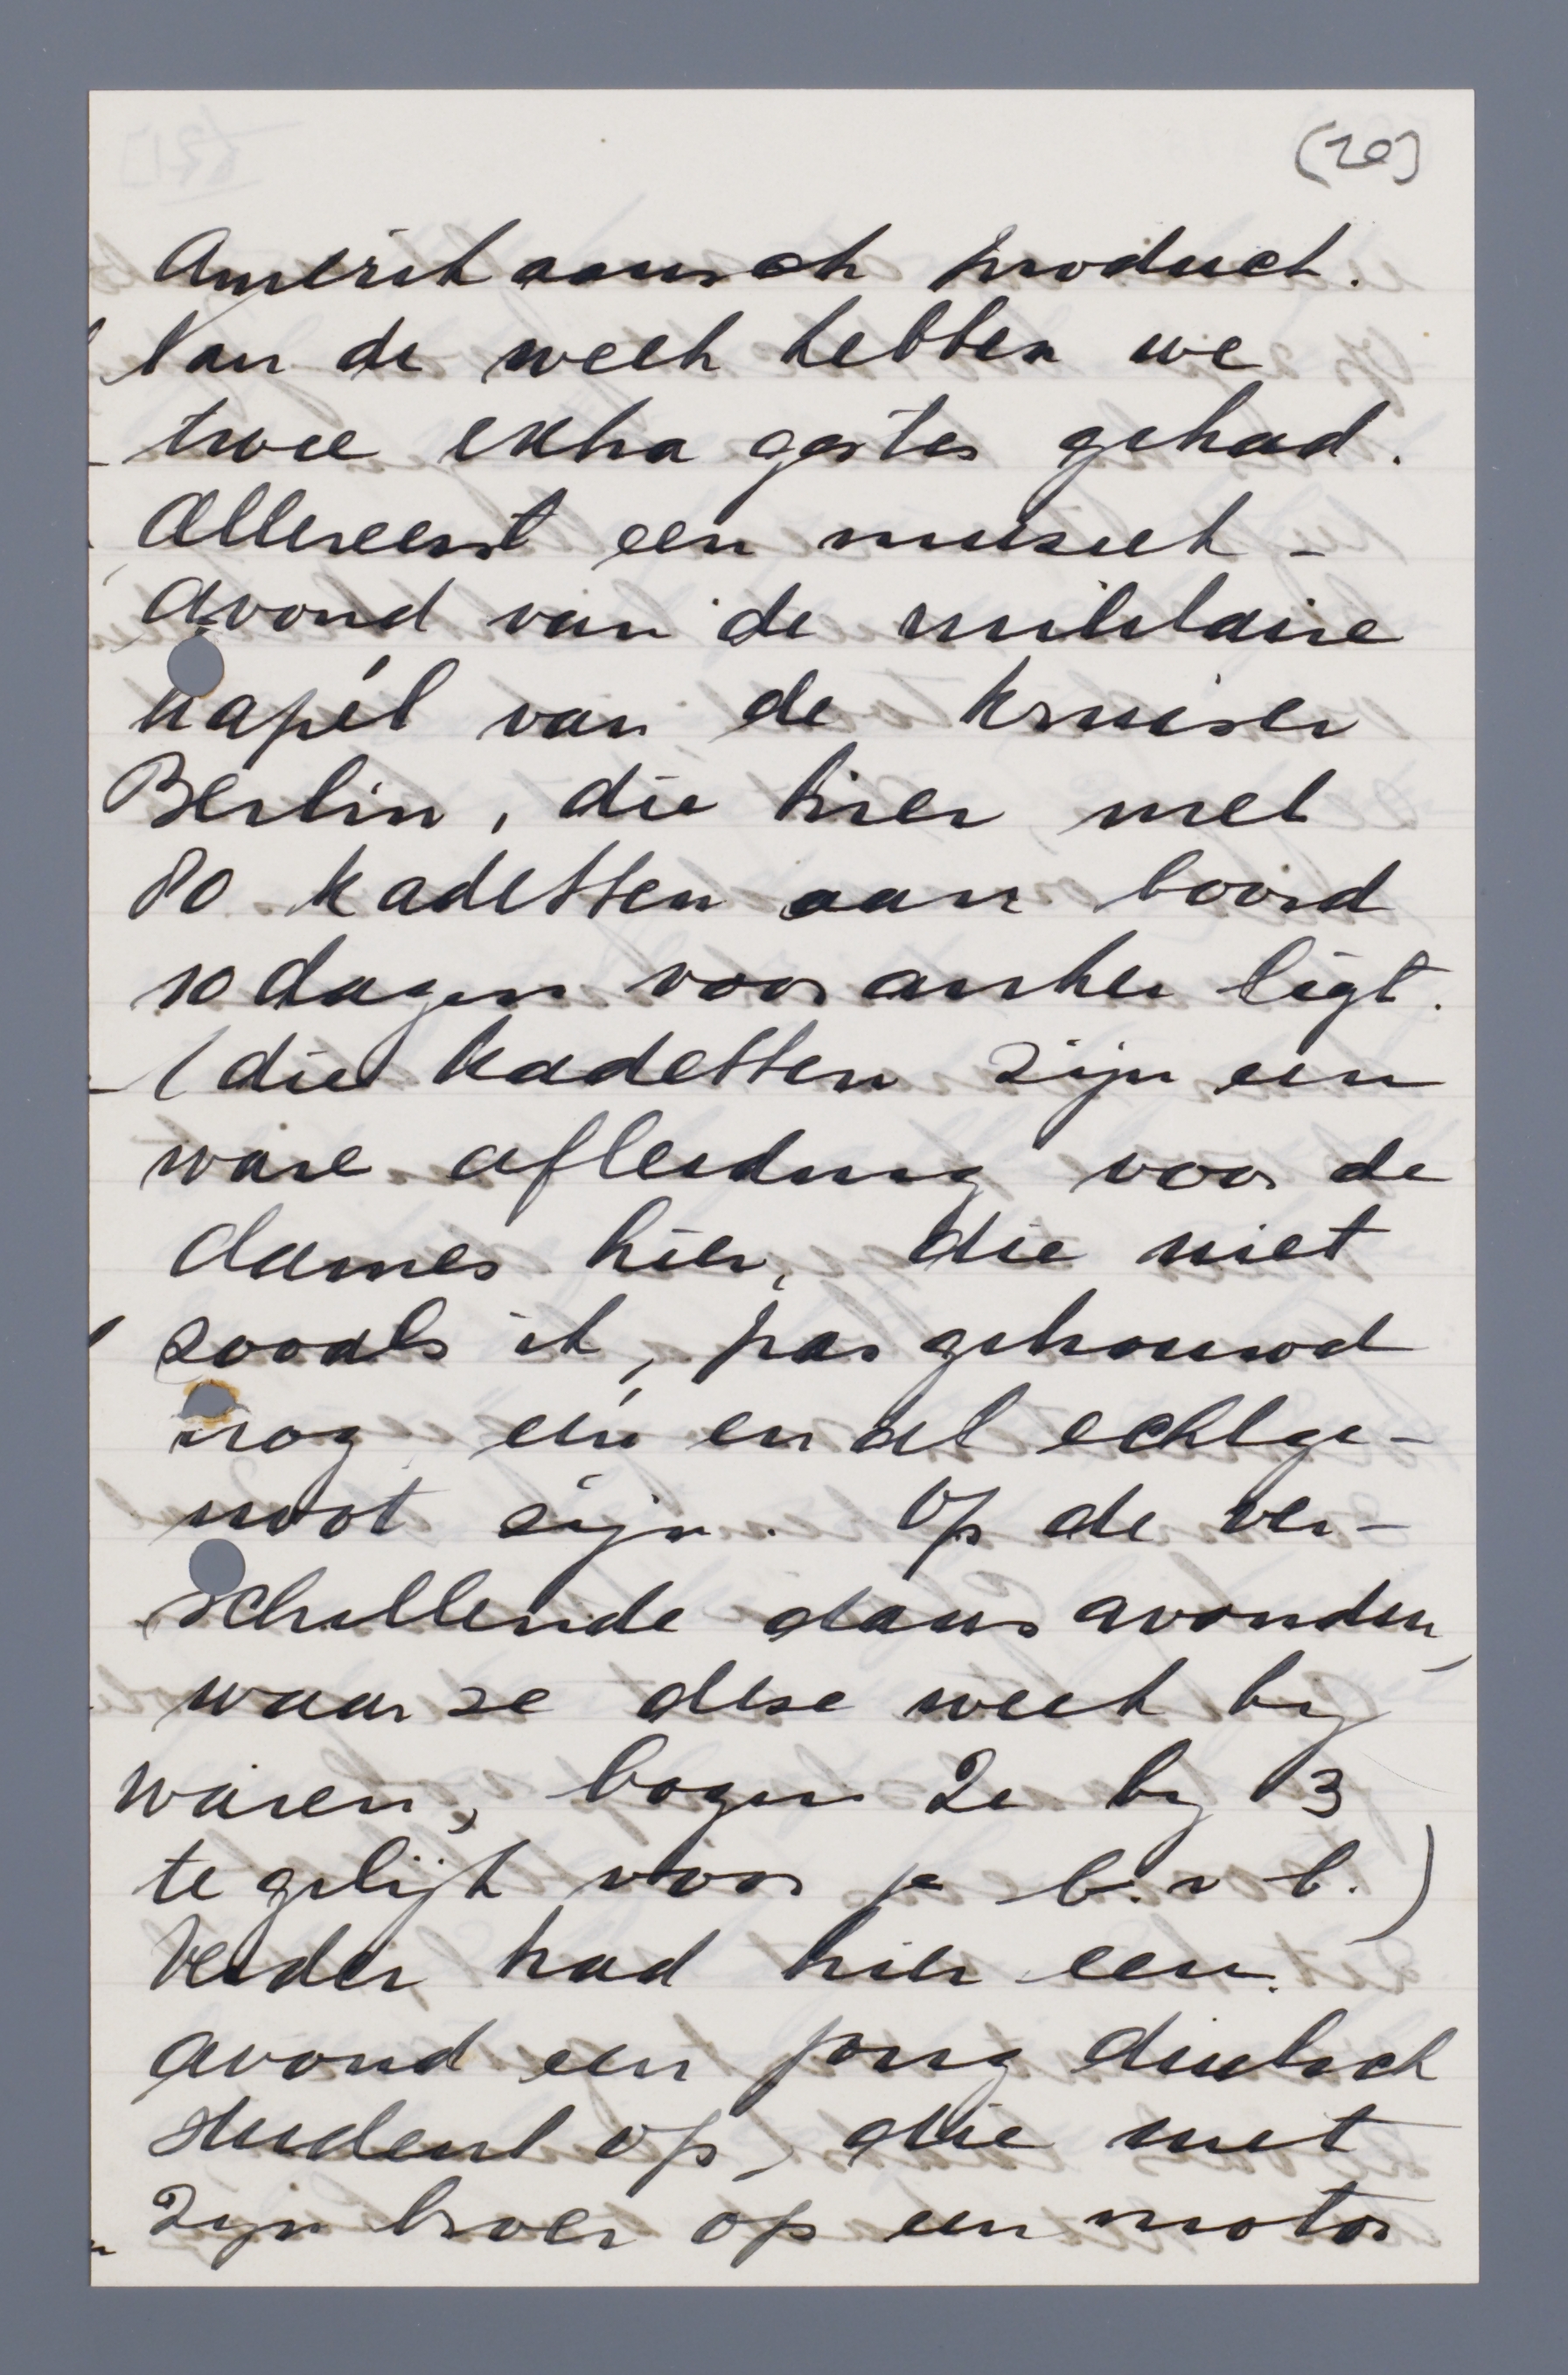 (20)
Amerikaansch product.
Van de week hebben we
twee extra gastes gehad.
Allereerst een muziek-
avond van de militaire
kapél van de kruiser
Berlin, die hier, met
80 kadetten aan boord
10 dagen voor anker ligt.
(die kadetten zijn een
ware afleiding voor de
dames hier, die niet
zooals ik, pas gehouwd
nog één en al echtge-
noot zijn. Op de ver-
schillende dans avonden,
waar ze deze week bij
waren, bogen ze bij 3
te gelijk voor je b.v.b.)
Verder trad hier een
avond een jong duitsch
student op, die met
zijn broer op een motor